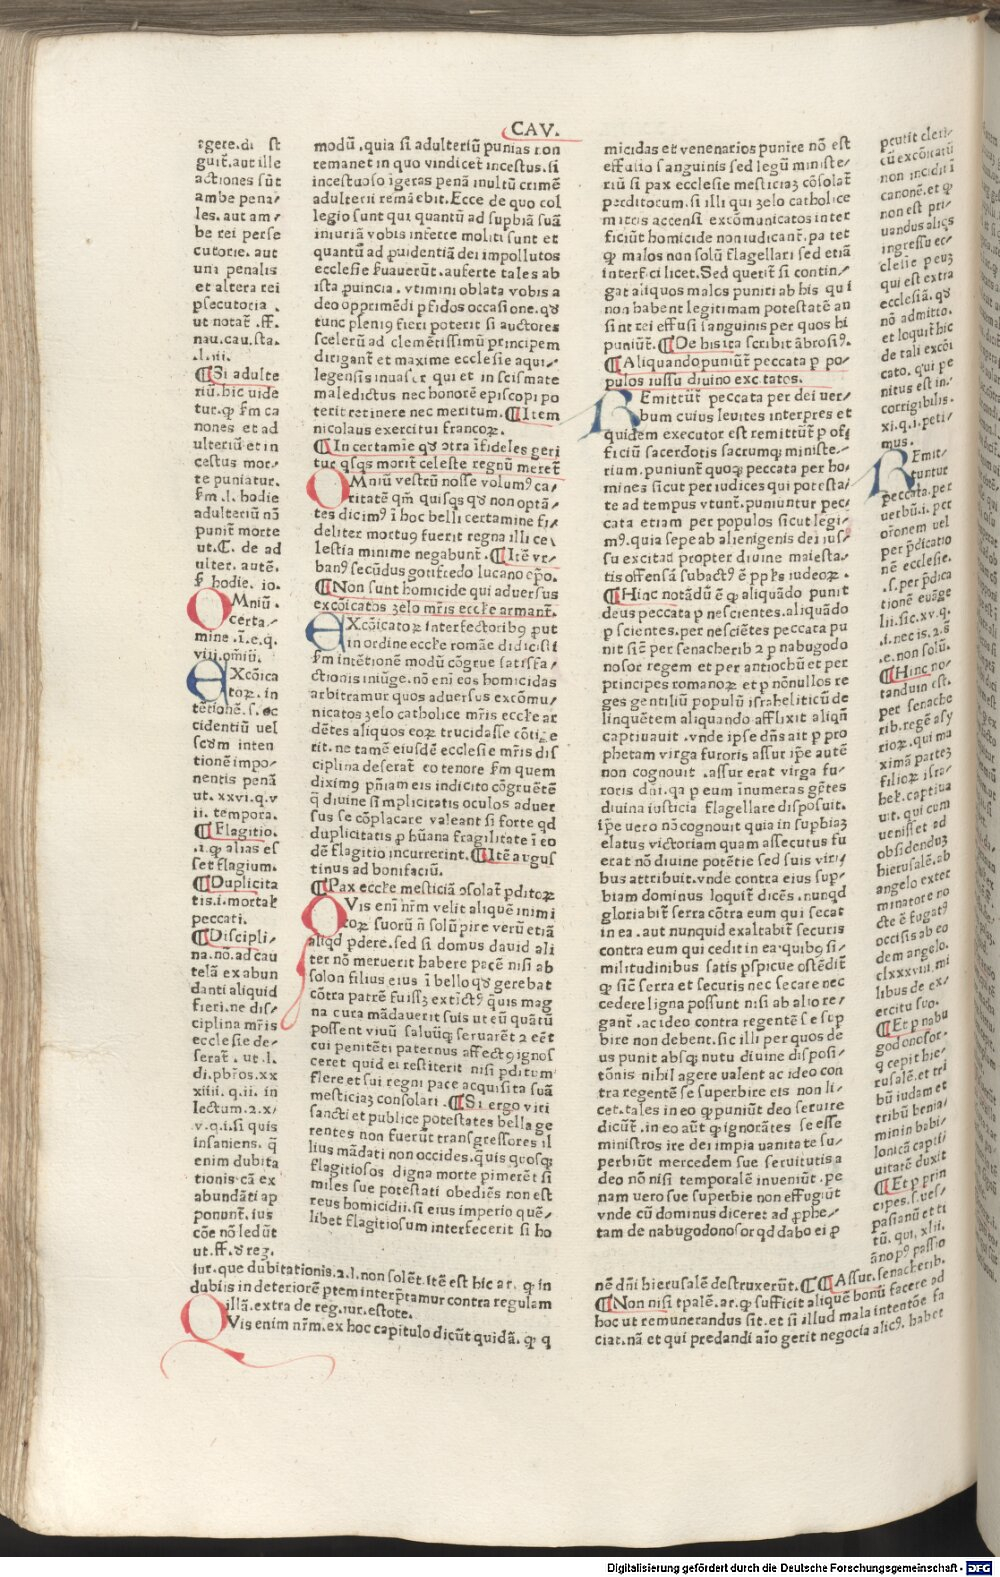 CAV.
rgere.di st
guit̄.aut ille
actiones sūt
ambe pena⸗
les. aut am⸗
be rei perse
cutorie. aut
una penalis
et altera rei
ꝑsecutoria .
ut notat̄ .ff.
nau.cau.sta.
.l.iii.
¶Si adulte
riū.hic uide
tur.ꝙ ẜm ca
nones et ad
ulteriū et in
cestus mor⸗
te puniatur.
ẜm .l. hodie
adulteriū nō
punit̄ morte
ut.C. de ad
ulter. autē.
ẜ hodie. io.
OMniū.
certa⸗
mine .i.e.q.
viii.om̄iū.
EXcōica
toꝝ. in
tētionē.s. oc
cidentiū uel
scd̄m inten
tionē impo⸗
nentis penā
ut. xxvi.q.v
ii. tempora.
¶Flagitio.
.i.ꝙ alias es
set flagium.
¶Duplicita
tis.i.mortal'
peccati.
¶Discipli⸗
na.nō.ad cau
telā ex abun
danti aliquid
fieri.ne dis⸗
ciplina mr̄is
ecclesie de⸗
serat̄ . ut .l.
di.pbr̄os.xx
xiiii. q.ii. in
lectum.2.x⸗
v.q.i.si quis
insaniens. q̄
enim dubita
tionis cā ex
abundāti ap
ponunt̄. ius
cōe nō ledūt
ut.ff.ꝺ reg.
iur.que dubitationis.2.l.non solēt.itē est hic ar. ꝙ in
dubiis in deteriorē ꝑtem interp̄tamur contra regulam
illā.extra de reg.iur.estote.
QVis enim nr̄m.ex hoc capitulo dicūt quidā. ꝙ q
modū .quia si adulteriū punias non
remanet in quo vindicet̄ incestus.si
incestuoso īgeras penā inultū crimē
adulterii remāebit.Ecce de quo col
legio sunt qui quantū ad supb̄iā suā
iniuriā vobis inferre moliti sunt et
quantū ad ꝓuidentiā dei impollutos
ecclesie ẜuauerūt.auferte tales ab
ista ꝓuincia. vtimini oblata vobis a
deo opprimēdi ꝑfidos occasione.qꝺ
tunc pleniꝰ fieri poterit si auctores
scelerū ad clemētissimū principem
dirigant̄ et maxime ecclesie aqui⸗
legensis inuasor qui et in scismate
maledictus nec honorē episcopi po
terit retinere nec meritum.¶Item
nicolaus exercitui francoꝝ.
¶In certamīe qꝺ ↄtra īfideles geri
tur qͥsqͥs morit̄ celeste regnū meret̄
OMniū vestrū nosse volumꝰ ca⸗
ritatē qm̄ quisqͥs qꝺ non optā⸗
tes dicimꝰ ī hoc belli certamine fi⸗
deliter mortuꝰ fuerit regna illi ce⸗
lestia minime negabunt̄.¶Itē vr⸗
banꝰ secūdus gotifredo lucano ep̄o.
¶Non sunt homicide qui aduersus
excōicatos zelo mr̄is eccl'e armant̄.
EXcōicatoꝝ interfectoribꝰ ꝓut
in ordine eccl'e romāe didicisti
ẜm intētionē modū cōgrue satisfa⸗
ctionis iniūge.nō enī eos homicidas
arbitramur quos aduersus excōmu⸗
nicatos zelo catholice mr̄is eccl'e ar
dētes aliquos eoꝝ trucidasse cōtīge
rit. ne tamē eiusdē ecclesie mr̄is dis
ciplina deserat̄ eo tenore ẜm quem
diximꝰ pn̄iam eis indicito cōgruētē
q̄ diuine sīmplicitatis oculos aduer
sus se cōplacare valeant si forte qd
duplicitatis ꝓ hūana fragilitate ī eo
dē flagitio incurrerint.¶Itē augus
tinus ad bonifaciū.
¶Pax eccl'e mesticiā ↄsolat̄ ꝑditoꝝ
QVis enī nr̄m velit aliquē inimi
coꝝ suorū ñ solū ꝑire verū etiā
aliqd ꝑdere.sed si domus dauid ali
ter nō meruerit habere pacē nisi ab
solon filius eius ī bello qꝺ gerebat
cōtra patrē fuissꝫ extīctꝰ quis mag
na cura mādauerit suis ut eū quātū
possent viuū saluūqꝫ seruarēt 2 eēt
cui penitēti paternus affectꝰ ignos
ceret quid ei restiterit nisi ꝑditum
flere et sui regni pace acquisita suā
mesticiaꝫ consolari.¶Si ergo viri
sancti et publice potestates bella ge
rentes non fuerūt transgressores il
lius mādati non occides.quis quosqꝫ
flagitiosos digna morte ꝑimerēt si
miles sue potestati obediēs non est
reus homicidii.si eius imperio quē⸗
libet flagitiosum interfecerit si ho
micidas et venenarios punire nō est
effusio sanguinis sed legū ministe⸗
riū si pax ecclesie mesticiaꝫ cōsolat̄
ꝑditorum.si illi qui zelo catholice
matris accensi excōmunicatos inter
ficiūt homicide non iudicant̄. patet
ꝙ malos non solū flagellari sed etiā
interfici licet.Sed querit̄ si contin⸗
gat aliquos malos puniri ab his qui
non habent legitimam potestatē an
sint rei effusi sanguinis per quos hi
puniūt̄.¶De his ita scribit ābrosiꝰ.
¶Aliquando puniūt̄ peccata ꝑ po⸗
pulos iussu diuino excitates.
REmittūt̄ peccata per dei uer⸗
bum cuius leuites interpres et
quidem executor est remittūt̄ ꝑ of⸗
ficiū sacerdotis sacrumqꝫ ministe⸗
rium.puniunt̄ quoqꝫ peccata per ho⸗
mines sicut per iudices qui potesta⸗
te ad tempus vtunt̄.puniuntur pec⸗
cata etiam per populos sicut legi⸗
mꝰ.quia sepe ab alienigenis dei ius⸗
su excitat̄ propter diuine maiesta⸗
tis offensā subactꝰ ē ppl's iudeoꝝ .
¶Hinc notādū ē ꝙ aliquādo punit
deus peccata ꝑ nescientes.aliquādo
ꝑ scientes.per nesciētes peccata pu
nit siē per senacherib 2 ꝑ nabugodo
nosor regem et per antiochū et per
principes romanoꝝ et ꝑ nōnullos re
ges gentiliū populū israheliticū de
linquētem aliquando afflixit aliqn̄
captiuauit .vnde ipse dn̄s ait ꝑ pro
phetam virga furoris assur ip̄e autē
non cognouit .assur erat virga fu⸗
roris dn̄i.qa ꝑ eum īnumeras gētes
diuina iusticia flagellare disposuit.
ip̄e uero nō cognouit quia in supb̄iaꝫ
elatus victoriam quam assecutus fu
erat nō diuine potētie sed suis viri⸗
bus attribuit.vnde contra eius sup⸗
biam dominus loquit̄ dicēs .nunqd
gloriabit̄ serra cōtra eum qui secat
in ea .aut nunquid exaltabit̄ securis
contra eum qui cedit in ea.quibꝰ si⸗
militudinibus satis ꝑspicue ostēdit̄
ꝙ siē serra et securis nec secare nec
cedere ligna possunt nisi ab alio re⸗
gant̄ .ac ideo contra regentē se sup
bire non debent.sic illi per quos de
us punit absqꝫ nutu diuine disposi⸗
tōnis nihil agere ualent ac ideo con
tra regentē se superbire eis non li⸗
cet.tales in eo ꝙ puniūt deo seruire
dicūt̄ .in eo aūt ꝙ ignorātes se esse
ministros ire dei impia uanitate su⸗
perbiūt mercedem sue seruitutis a
deo nō nisi temporalē inueniūt .pe
nam uero sue superbie non effugiūt
vnde cū dominus diceret ad ꝓphe⸗
tam de nabugodonosor qd dabo ei ꝓ
ꝑcutit cleri⸗
cū excōicatū
non incidit ī
canonē.et ꝙ
non est pri⸗
uandus aliqͥs
ingressu ecc⸗
clesie peuꝫ
qui est extra
ecclesiā.qꝺ
nō admitto.
et loquit̄ hic
de tali excōi
cato. qui pe
nitus est in⸗
corrigibilis.
xi.q.i.peti⸗
mus.
REmit⸗
tuntur
peccata.per
uerbū.i. per
or̄onem uel
per p̄dicatio
nē ecclesie.
.s.per p̄dica
tionē euāge
lii.sic.xv.q.
.i.nec is.2.§
.e.non solū.
¶Hinc no⸗
tandum est.
per senache
rib.regē asy
rioꝝ.qui ma
ximā parteꝫ
filioꝝ isra⸗
hel'. captiua
uit. qui cum
uenisset ad
obsidenduꝫ
hierusalē.ab
angelo exter
minatore no
cte ē fugatꝰ
occisis ab eo
dem angelo.
clxxxviii.mi
libus de ex⸗
ercitu suo.
¶Et ꝑ nabu
godonosor⸗
q cepit hie⸗
rusalē.et tri
bū iudam et
tribū benia⸗
min in babi⸗
lonicā capti
uitatē duxit
¶Et ꝑ prin
cipes.s.ues⸗
pasianū et ti
tū. qui. xlii.
āno pꝰ passio
nē dn̄i hierusalē destruxerūt.¶¶Assur.senacherib.
¶Non nisi tp̄alē.ar.ꝙ sufficit aliquē bonū facere ad
hoc ut remunerandus sit.et si illud mala intentōe fa
ciat.nā et qui predandi aīo gerit negocia alicꝰ. habet
Digitalisierung gefördert durch die Deutsche Forschungsgemeinschaft - DFG